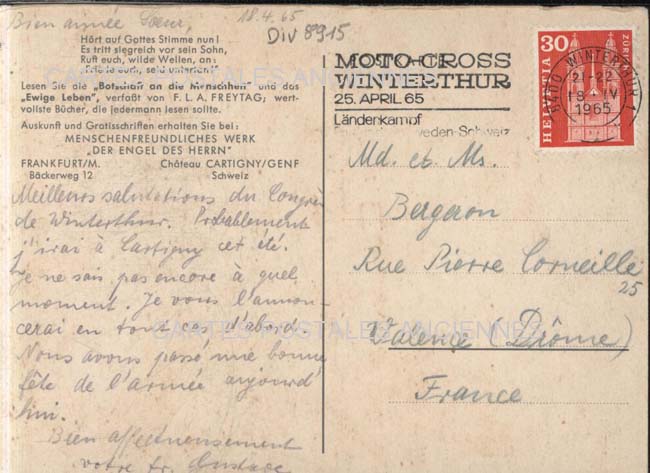 Bien aimée Sœur,
18.4.65
DIV 8915
Hört auf Gottes Stimme nun!
Es tritt siegreich vor sein Sohn,
Ruft euch, wilde Wellen, an:
Lesen Sie die „Botschaft an die Menschheit" und das
„Ewige Leben", verfaßt von F. L. A. FREYTAG; wert-
vollste Bücher, die jedermann lesen sollte.
Auskunft und Gratisschriften erhalten Sie bei:
MENSCHENFREUNDLICHES WERK
„DER ENGEL DES HERRN"
FRANKFURT/M. Château CARTIGNY/GENF
Bäckerweg 12 Schweiz
Meilleures salutations du Congrès
de Winterthur. Probablement
j'irai à Cartigny cet été.
Je ne sais pas encore à quel
moment. Je vous l'annon-
cerai en tout cas d'abord.
Nous avons passé une bonne
fête de l'armée aujourd'
hui.
Bien affectueusement
votre fr. Gustave
MOTO-CROSS
WINTERTHUR
25. APRIL 65
Länderkampf
Schweden-Schweiz
8400 WINTERTHUR 1
21-22
18-IV
1965
30
HELVETIA
Md. et Ms.
Bergeron
Rue Pierre Corneille
25
Valence (Drôme)
France
CARTES POSTALES ANCIENNES
CARTES POSTALES ANCIENNES